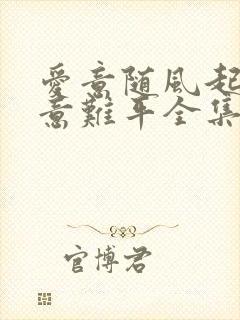 愛意随風起
意難平全集
官博君